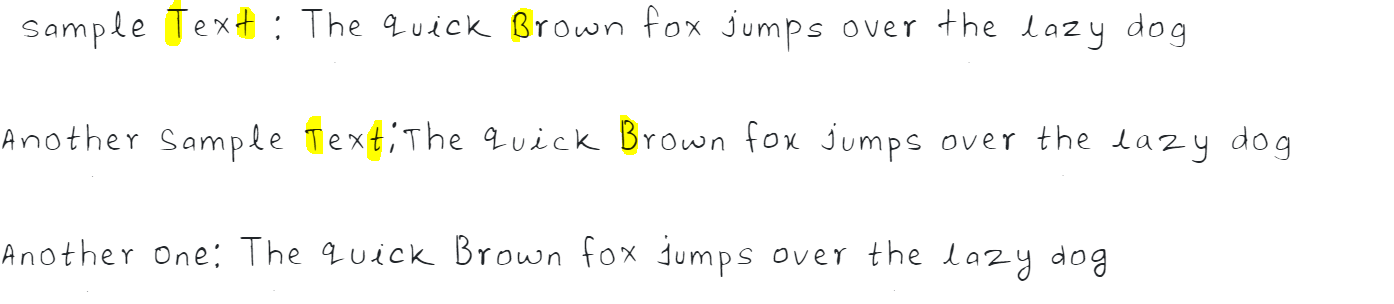 Sample Text : The quick Brown fox jumps over the lazy dog
Another Sample Text; The quick Brown fox jumps over the lazy dog
Another One: The quick Brown fox jumps over the lazy dog